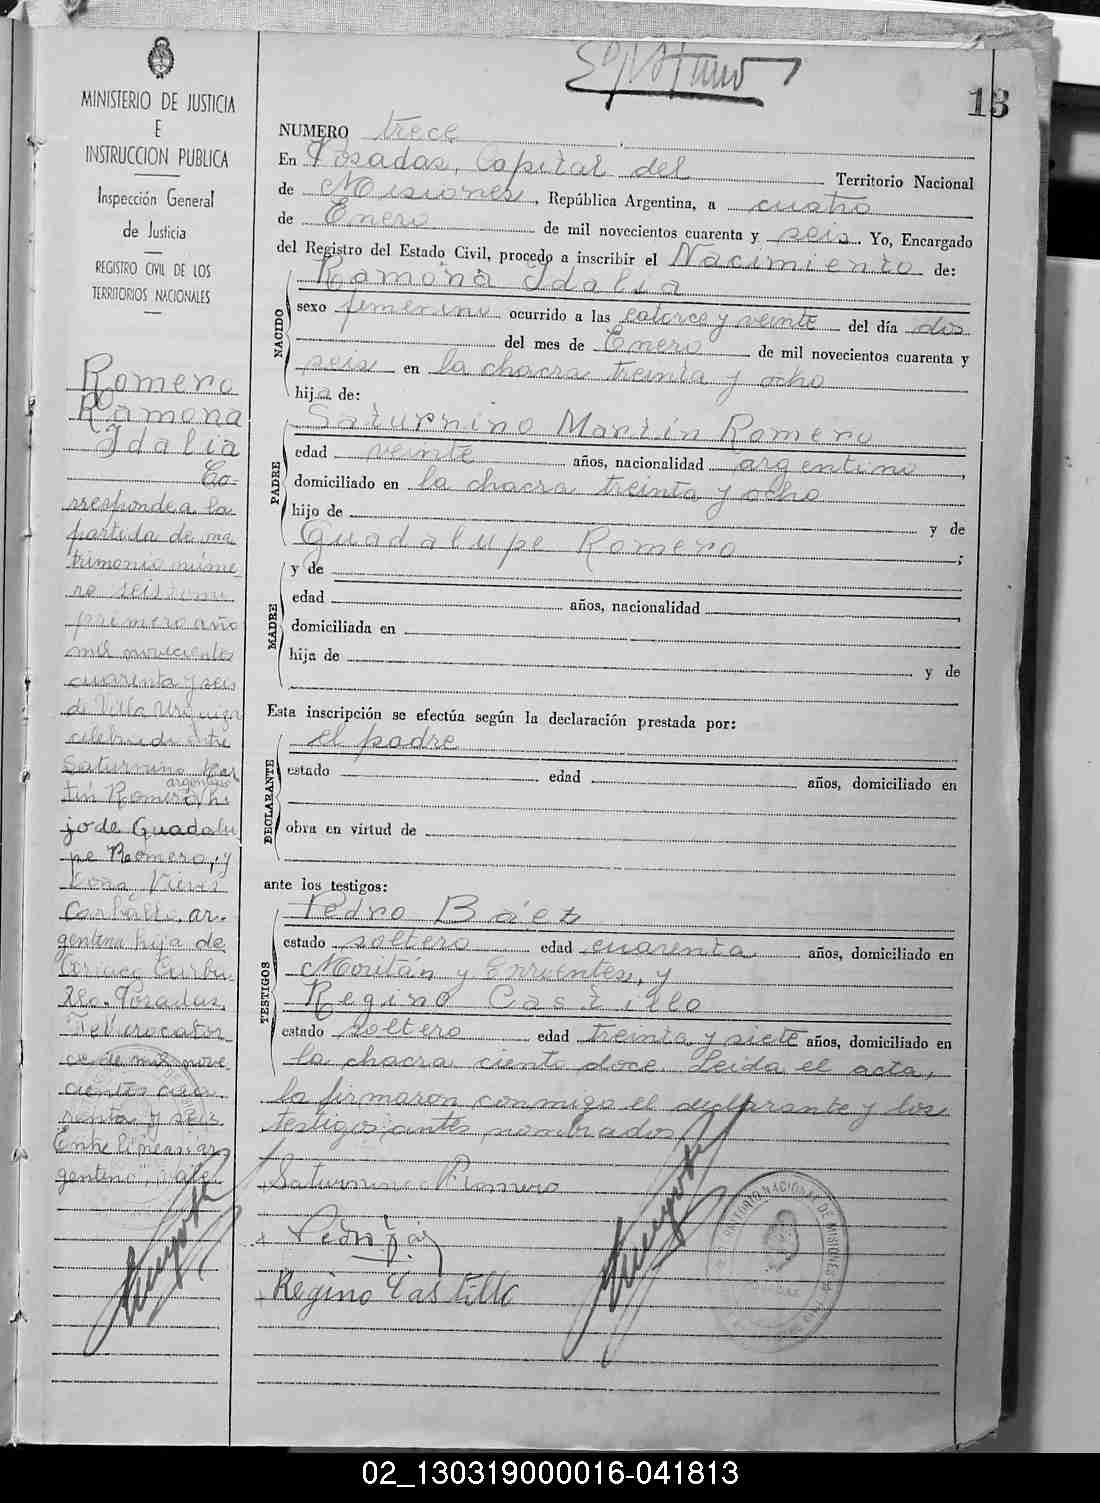 13
MINISTERIO DE JUSTICIA
E
INSTRUCCION PUBLICA
Inspección General
de Justicia
REGISTRO CIVIL DE LOS
TERRITORIOS NACIONALES
Romero
Ramona
Idalia
Co-
rresponde a la
partida de ma
trimonio núme-
ro seis tomo
primero año
mil novecientos
cuarenta y seis
de Villa Urquiza
celebrado entre
Saturnino Mar
argentino
tín Romero, hi
jo de Guadalu
pe Romero, y
Doña
ar-
gentina hija de
Posadas,
cator-
ce de mil nove
cientos cua
renta y seis.
Entre lineas: ar
gentino", vale.
NUMERO trece
En Posadas, Capital del Territorio Nacional
de Misiones, República Argentina, a cuatro
de Enero de mil novecientos cuarenta y seis Yo, Encargado
del Registro del Estado Civil, procedo a inscribir el Nacimiento de:
NACIDO
Ramona Idalia
sexo femenino ocurrido a las catorce y veinte del día dos
del mes de Enero de mil novecientos cuarenta y
seis en la chacra treinta y ocho
hija de:
PADRE
Saturnino Martín Romero
edad veinte años, nacionalidad argentino,
domiciliado en la chacra treinta y ocho
hijo de y de
Guadalupe Romero;
MADRE
y de
edad años, nacionalidad
domiciliada en
hija de y de
Esta inscripción se efectúa según la declaración prestada por:
DECLARANTE
el padre
estado edad años, domiciliado en
obra en virtud de
ante los testigos:
TESTIGOS
Pedro Báez
estado soltero edad cuarenta años, domiciliado en
y
Regino Castillo
estado soltero edad treinta y siete años, domiciliado en
la chacra ciento doce. Leida el acta,
la firmaron conmigo el declarante y los
testigos antes nombrados
Saturnino Romero
Regino Castillo
TERRITORIO NACIONAL DE MISIONES
02_130319000016-041813